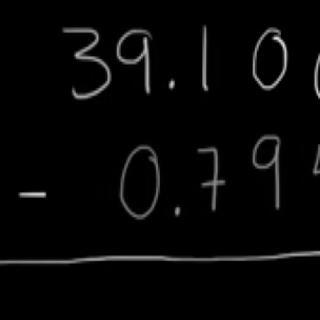 39.10
- 0.79